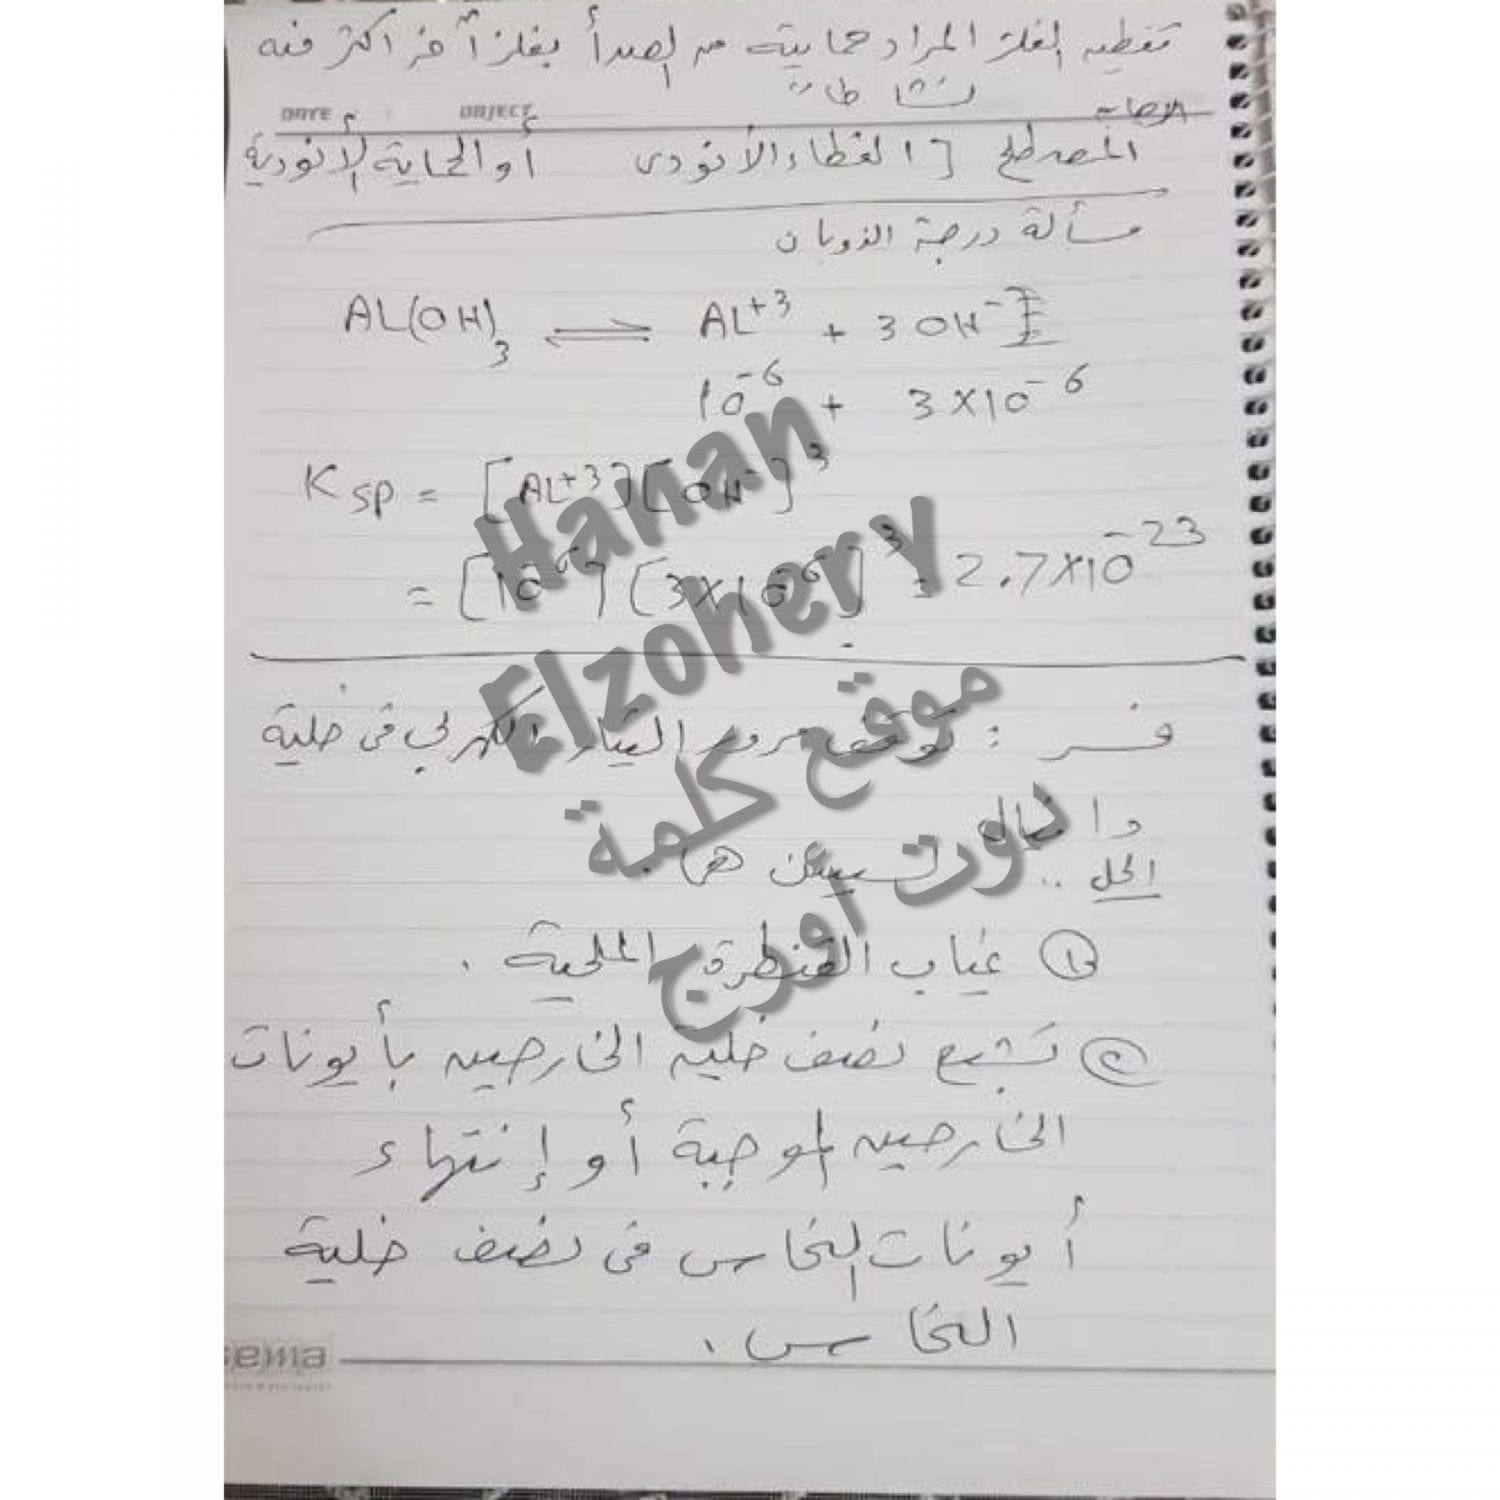 تغطيه الفلز المراد حمايته من الصدأ بفلز آخر أكثر منه
نشاطاً
DATE OBJECT
الاجابه
المصطلح [ الغطاء الأنودى أو الحماية الأنودية
مسألة درجة الذوبان
AL(OH)3 ⇌ AL+3 + 3 OH-
10-6 + 3×10-6
Ksp = [AL+3][OH-]3
= [10-6] [3×10-6]3 = 2.7×10-23
فسر : توقف مرور التيار الكهربي في خلية
دانيال
الحل .. لسببين هما .
① غياب القنطرة الملحية .
② تشبع نصف خلية الخارصين بأيونات
الخارصين الموجبة أو إنتهاء
أيونات النحاس في نصف خلية
النحاس .
sema
Hanan
Elzohery
موقع كلمة
دوت أورج